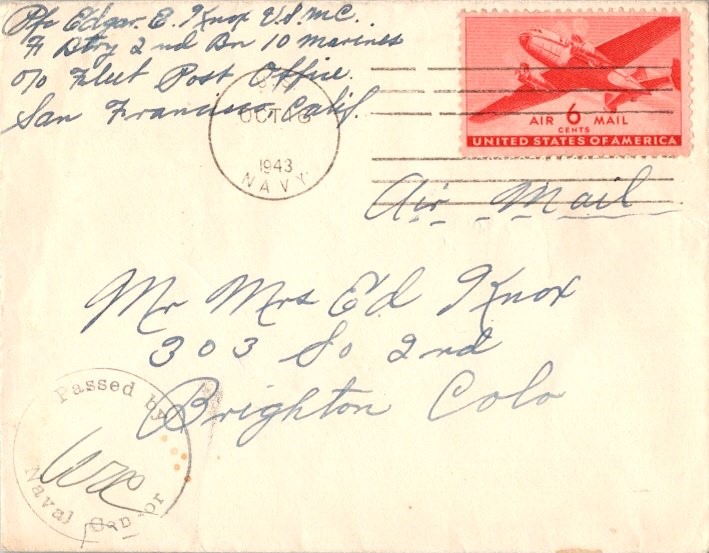 Pfc Edgar. E. Knox U.S.M.C.
F Btry 2nd Bn 10 Marines
c/o Fleet Post Office.
San Francisco, Calif.
OCT 16
1943
NAVY
AIR 6 MAIL
CENTS
UNITED STATES OF AMERICA
Air Mail
Mr Mrs Ed Knox
303 So 2nd
Brighton Colo
Passed by
Naval Censor